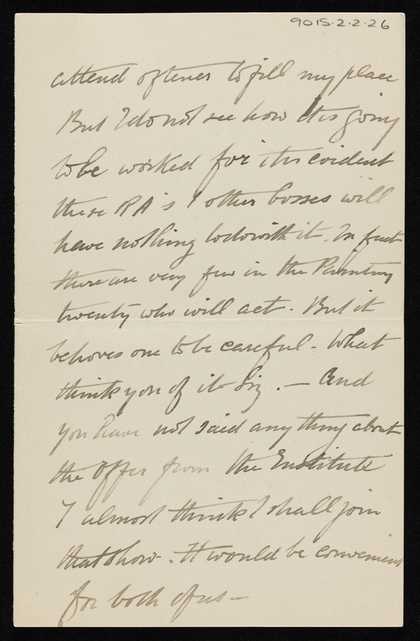 9015-2-2-26
attend oftener to fill my place
But I do not see how it is going
to be worked for it is evident
these RA's & other bosses will
have nothing to do with it. In fact
there are very few in the Painting
twenty who will act. But it
behoves one to be careful - What
think you of it Liz. — And
you have not said anything about
the offer from the Institute
I almost think I shall join
that show. It would be convenient
for both of us —